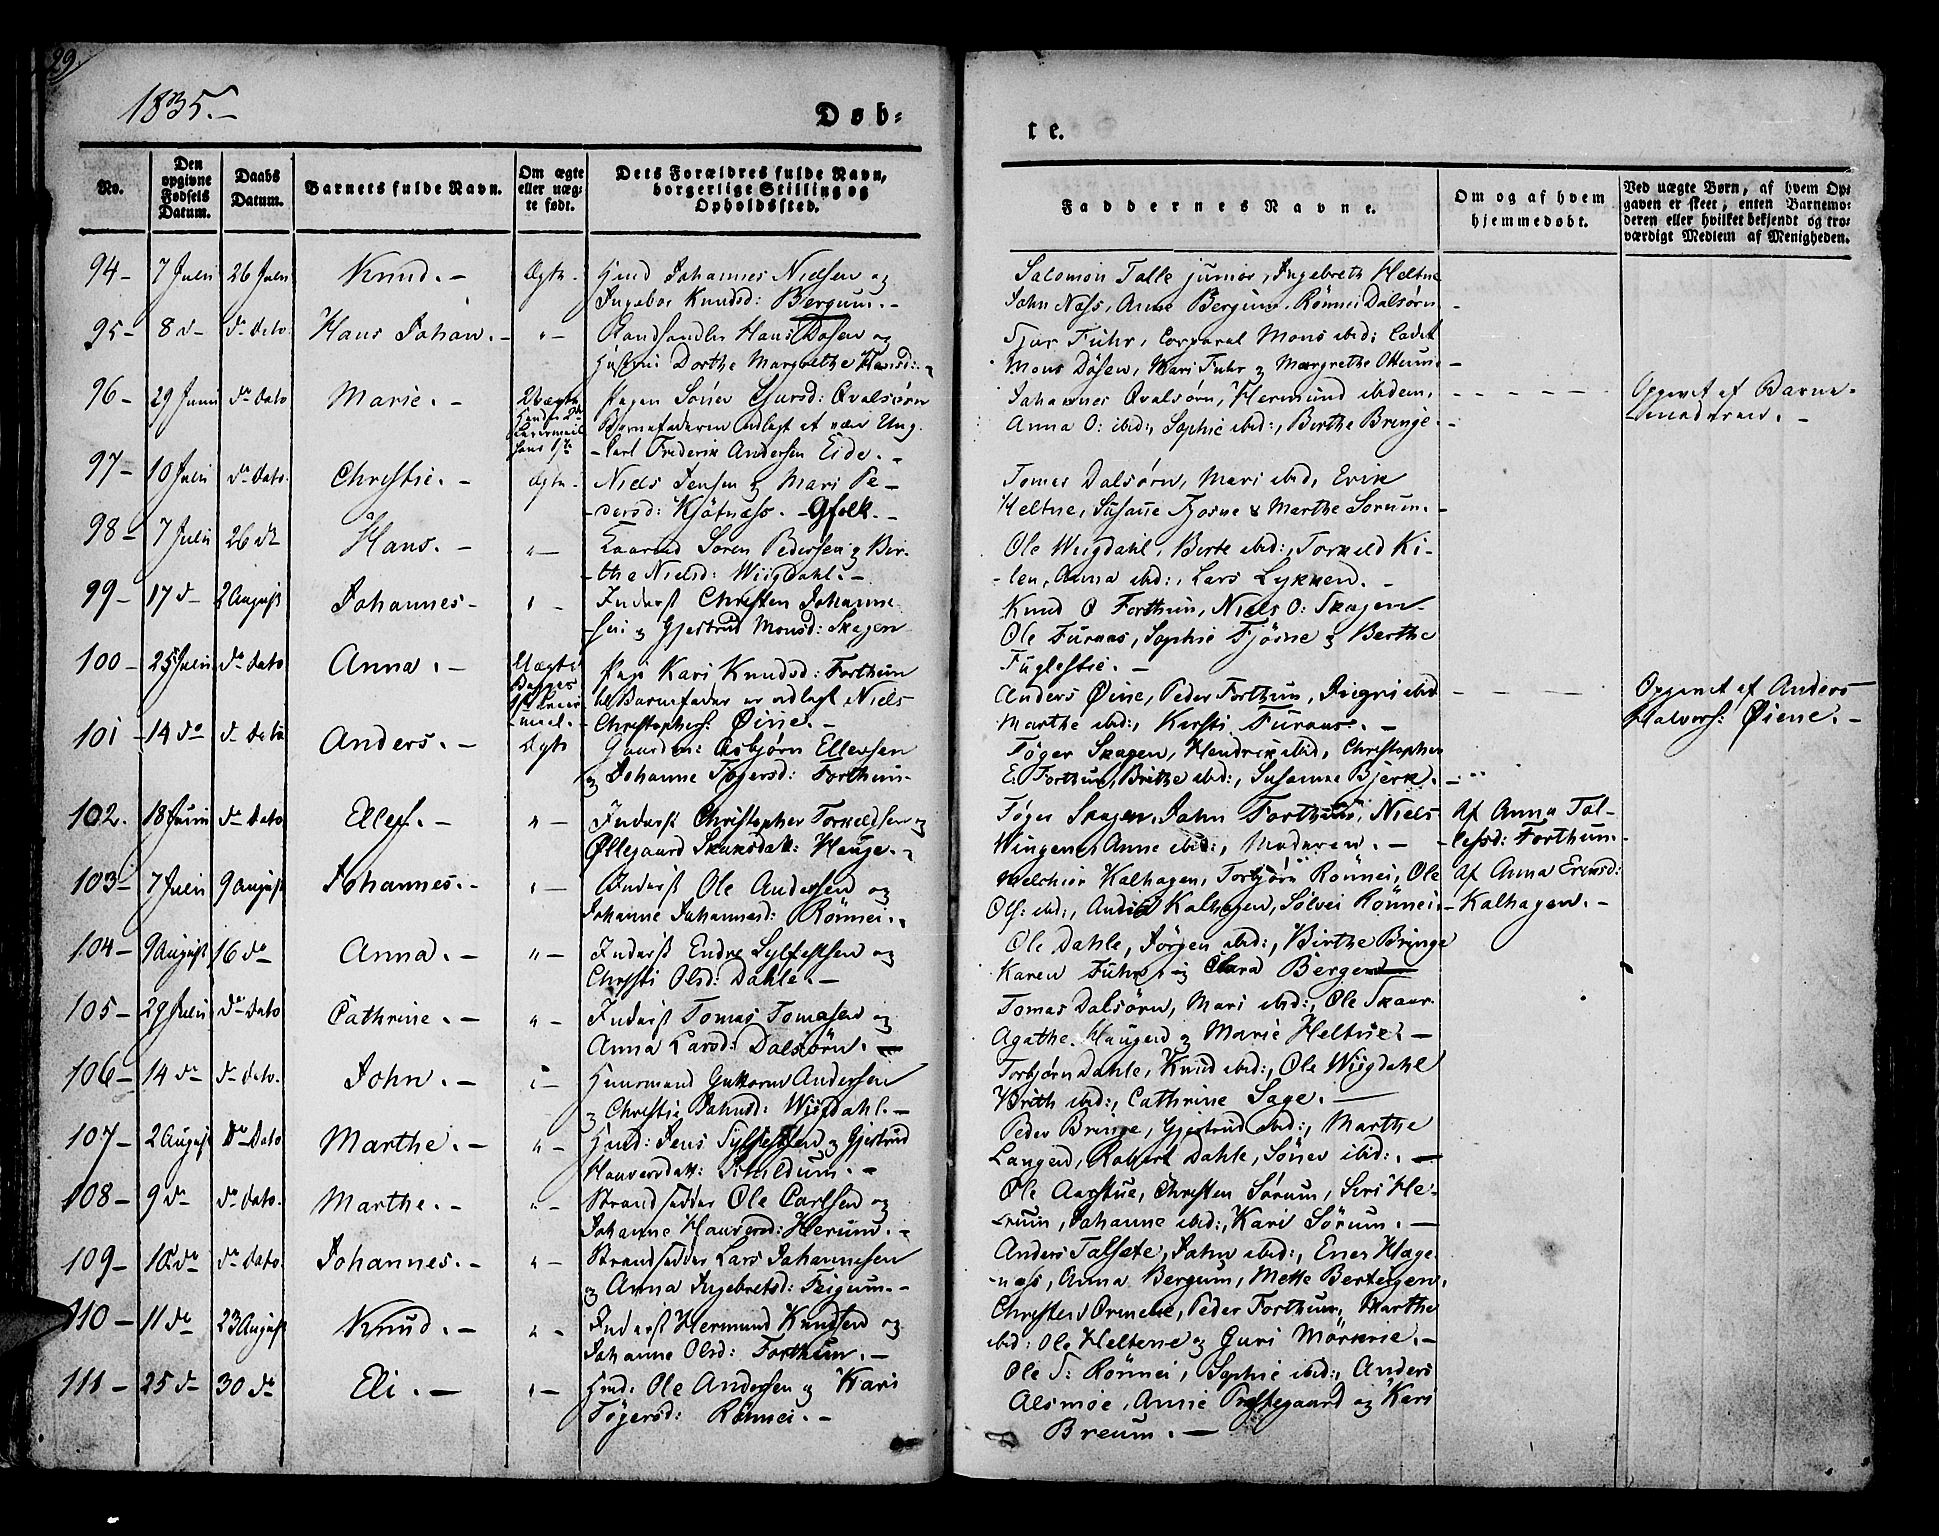 29.
1835.-
Døb=
te.
No.
Den opgivne Fødsels Datum.
Daabs Datum.
Barnets fulde Navn.
Om ægte eller uægte født.
Dets Forældres fulde Navn, borgerlige Stilling og Opholdssted.
Faddernes Navne.
Om og af hvem hjemmedøbt.
Ved uægte Børn, af hvem Opgaven er skeet, enten Barnemoderen eller hvilket bekjendt og troværdigt Medlem af Menigheden.
94- 7 Juli 26 Juli Knud.- Ægte. Hmd Johannes Nielsen og
Ingebor Knudsd: Bergum.-
Salomon Talle junior, Ingebreth Heltne
John Næss, Anne Bergum, Rönnei Dalsørn
95- 8 do- do dato Hans Johan.- "- Hans Døsen og
Hustrue Dorthe Margrethe Hansd:
Fuhr, Corporal Mons ibid: Cadet
Mons Dösen, Kari Fuhr & Margrethe Ottum
96- 29 Juni do dato Marie.- Uægte
Pigen Sönev Sjursd: Qvalsørn
Barnefaderen udlagt at være Ung.
-karl Frederik Andersen Eide.-
Johannes Qvalsørn, Hermund ibidem,
Anna O: ibid:, Sophie ibid:, Birthe Bringe.
Opgivet af Barne-
moderen.-
97- 10 Juli do dato. Christie.- Ægte.
Niels Jensen & Mari Pe-
-dersd: Kjötnæss. -Gfolk.-
Tomas Dalsørn, Mari ibid, Erik
Heltne, Susanne Fjosne & Marthe Sorum.
98- 7 Juli 26 do Hans.- "-
Sören Pedersen & Bir-
-the Nielsd: Wiigdahl.-
Ole Wiigdahl, Berte ibid:, Torkild Ki-
-len, Anna ibid:, Lars Lykken.-
99- 17 do- 2 August Johannes- "-
Inderst Christen Johanne-
-sen & Gjertrud Monsd: Skagen
Knud O Forthun, Niels O: Skagen
Ole Furaas, Sophie Fjösne & Berthe
Fuglestie.-
100- 25 Juli do dato Anna.- Uægte
Pige Kari Knudsd: Forthun
til Barnefader er udlagt Niels
Christophers: Øine.-
Anders Øine, Peder Forthun, Singri ibid
Marthe ibid:, Kirsti Furaas.-
Opgivet af Anders
Halvors: Øiene.-
101- 14 do do dato Anders.- Ægte
Gaardm: Asbjørn Ellevsen
& Johanne Tøgersd: Forthun-
Tøger Skagen, Hendrik ibid:, Christopher
E. Forthun, Brithe ibid:, Susanne Bjerk.
102. 18 Juni do dato Ellef.- "-
Inderst Christopher Torkildsen og
Øllegaard Hauge.-
Tøger Skagen, John Forthun, Niels
Wingen, Anne ibid:, Moderen.-
Af Anna Tol-
lefsd: Forthun.
103- 7 Juli 9 August Johannes.- "-
Inderst Ole Andersen og
Johanne Johannesd: Rönnei.-
Melchior Kalhagen, Torbjörn Rönnei, Ole
Ols: ibid:, Kalhagen, Sölvei Rönnei.
Af Anna Eriksd:
Kalhagen.-
104- 9 August 16 do Anna.- "-
Inderst Endre Sylfestsen og
Christi Olsd: Dahle.-
Ole Dahle, Jörgen ibid:, Birthe Bringe
Karen Fuhr, & Clara Bergen
105- 29 Juli do dato Cathrine.- "-
Inderst Tomas Tomasen og
Anna Larsd: Dalsörn.-
Tomas Dalsörn, Mari ibid:, Ole Skaar
Agathe Haugen & Marie Heltne.-
106- 14 do do dato. John.- "-
Huusmand Guttorm Andersen
& Christie Johnsd: Wiigdahl.-
Torbjørn Dahle, Knud ibid:, Ole Wiigdahl
Brith ibid:, Cathrine Sage.-
107- 2 August do dato Marthe.- "-
Hmd: Jens Sylfestsen & Gjertrud
Haavarsdatt:
Peder Bringe, Gjertrud ibid:, Marthe
Langen, Robert Dahle, Sönev ibid:.-
108- 9 do do dato. Marthe.- "-
Strandsidder Ole Carlsen og
Johanne Haversd: Herum.-
Ole Aarstue, Christen Sörum, Siri He-
-rum, Johanne ibid:, Kari Sörum.-
109- 10 do do dato. Johannes.- "-
Strandsidder Lars Johannesen
& Anna Ingebretsd: Feigum.-
Anders Talsæte, John ibid:, Hage-
-næss, Anna Bergum, Mette Bertergen.
110- 11 do 23 August Knud.- "-
Inderst Hermund Knudsen og
Johanne Olsd: Forthun.-
Christen Ormelie, Peder Forthun, Marthe
ibid: Ole Heltene & Guri Mörkrie.-
111- 25 do 30 do Eli.- "-
Hmd: Ole Andersen & Kari
Tögersd: Rönnei.-
Ole T: Rönnei, Sophie ibid:, Anders
Alsmoe, Annie Prestegaard og Kari
Breum.-